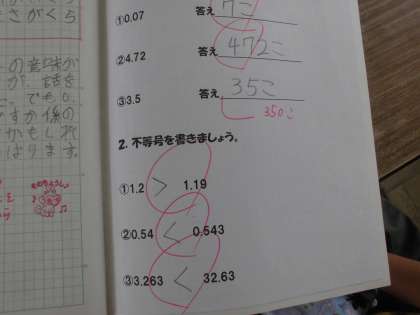 さがくら
の意味が
が、話を
でもり、
すが係の
かもしれ
ばります。
①0.07
答え 7こ
②4.72
答え 472こ
③3.5
答え 35こ
350こ
2. 不等号を書きましょう。
①1.2 > 1.19
②0.54 < 0.543
③3.263 < 32.63